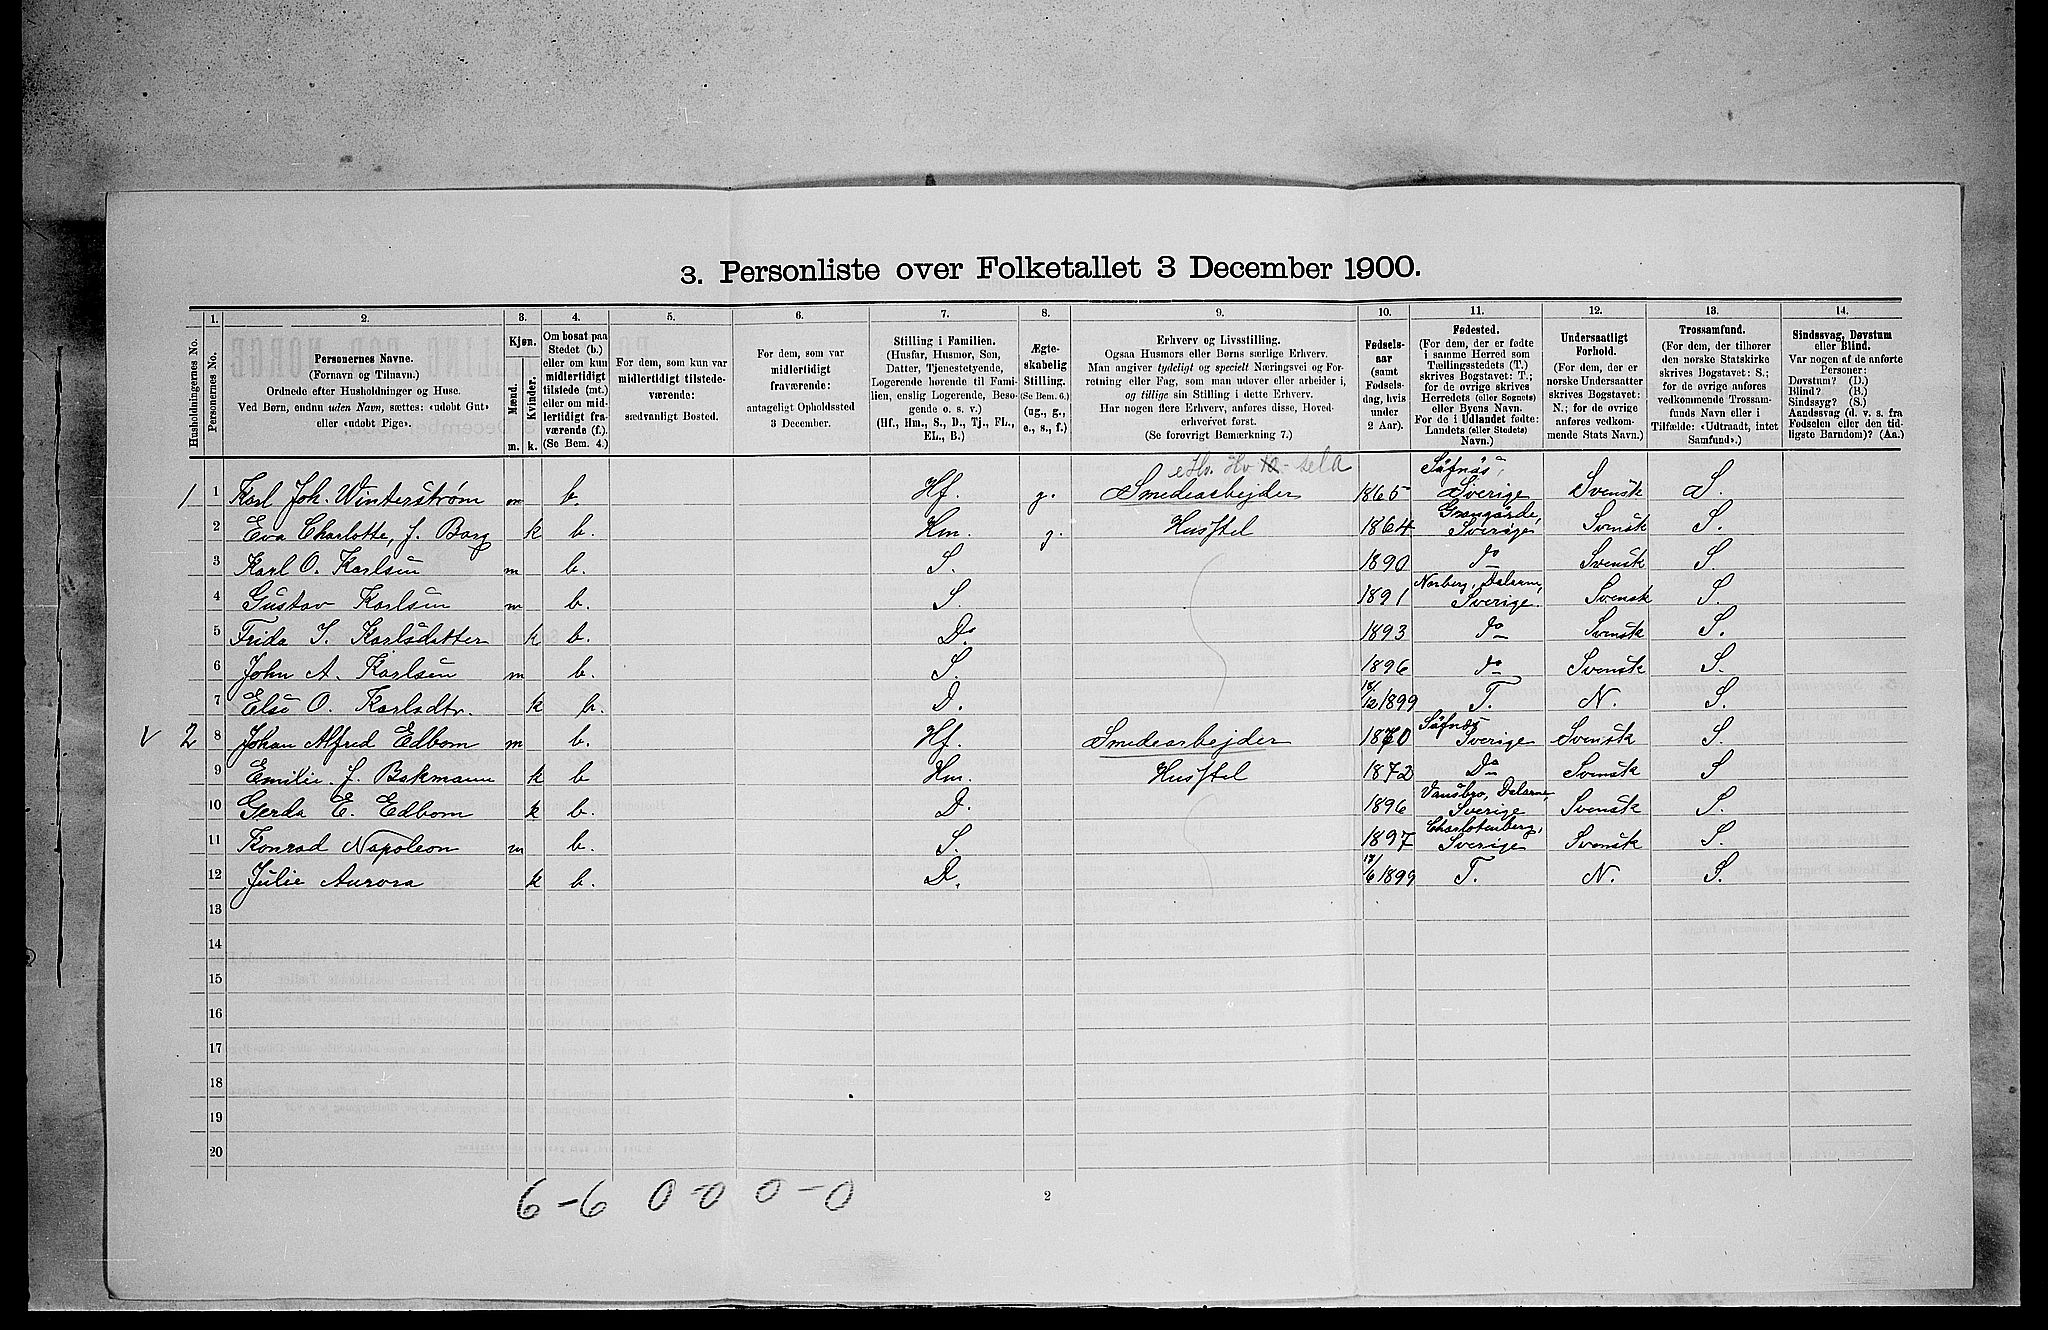 3. Personliste over Folketallet 3 December 1900.
Husholdningernes No.
1. Personernes No.
2. Personernes Navne.
(Fornavn og Tilnavn.)
Ordnede efter Husholdninger og Huse.
Ved Børn, endnu uden Navn, sættes: «udøbt Gut»
eller «udøbt Pige».
3. Kjøn.
Mænd. m.
Kvinder. k.
4. Om bosat paa
Stedet (b.)
eller om kun
midlertidigt
tilstede (mt.)
eller om mid-
lertidigt fra-
værende (f.).
(Se Bem. 4.)
5. For dem, som kun var
midlertidigt tilstede-
værende:
sædvanligt Bosted.
6. For dem, som var
midlertidigt
fraværende:
antageligt Opholdssted
3 December.
7. Stilling i Familien.
(Husfar, Husmor, Søn,
Datter, Tjenestetyende,
Logerende hørende til Fami-
lien, enslig Logerende, Besø-
gende o. s. v.)
(Hf., Hm., S., D., Tj., FL.,
EL., B.)
8. Ægte-
skabelig
Stilling.
(Se Bem. 6.)
(ug., g.,
e., s., f.)
9. Erhverv og Livsstilling.
Ogsaa Husmors eller Børns særlige Erhverv.
Man angiver tydeligt og specielt Næringsvei og For-
retning eller Fag, som man udøver eller arbeider i,
og tillige sin Stilling i dette Erhverv.
Har nogen flere Erhverv, anføres disse, Hoved-
erhvervet først.
(Se forøvrigt Bemærkning 7.)
10. Fødsels-
aar
(samt
Fødsels-
dag, hvis
under
2 Aar).
11. Fødested.
(For dem, der er fødte
i samme Herred som
Tællingsstedets (T.)
skrives Bogstavet: T.;
for de øvrige skrives
Herredets (eller Sognets)
eller Byens Navn.
For de i Udlandet fødte:
Landets (eller Stedets)
Navn.)
12. Undersaatligt
Forhold.
(For dem, der er
norske Undersaatter
skrives Bogstavet:
N.; for de øvrige
anføres vedkom-
mende Stats Navn.)
13. Trossamfund.
(For dem, der tilhører
den norske Statskirke
skrives Bogstavet: S.;
for de øvrige anføres
vedkommende Trossam-
funds Navn eller i
Tilfælde: «Udtraadt, intet
Samfund».)
14. Sindssvag, Døvstum
eller Blind.
Var nogen af de anførte
Personer:
Døvstum? (D.)
Blind? (B.)
Sindssyg? (S.)
Aandssvag (d. v. s. fra
Fødselen eller den tid-
ligste Barndom)? (Aa.)
1 1 Karl Joh. Winterstrøm m b. Hf. g. Smedearbejder 1865 Säfnäs, Sverige Svensk S.
2 Eva Charlotte, f. Borg k b. Hm. g. Husstel 1864 Grangärde, Sverige Svensk S.
3 Karl O. Karlsen m b. S. 1890 do Svensk S.
4 Gustav Karlsen m b. S. 1891 Norberg, Dalarne, Sverige. Svensk S.
5 Frida I. Karlsdatter k b. D. 1893 do Svensk S.
6 John A. Karlsen m b. S. 1896 do Svensk S.
7 Else O. Karlsdtr. k b. D. 18/12 1899 T. N. S.
v 2 8 Johan Alfred Edbom m b. Hf. Smedearbejder 1870 Säfnäs Sverige Svensk S.
9 Emilie f. Bakmann k b Hm. Husstel 1872 Do Svensk S
10 Gerda E. Edbom k b. D. 1896 Vansbro, Dalarne, Sverige Svensk S.
11 Konrad Napoleon m b. S. 1897 Charlotenberg, Sverige Svensk S.
12 Julie Aurora k b. D. /6 1899 T. N. S.
13
14
15
16
17
18
19
20
6-6 0-0 0-0
2